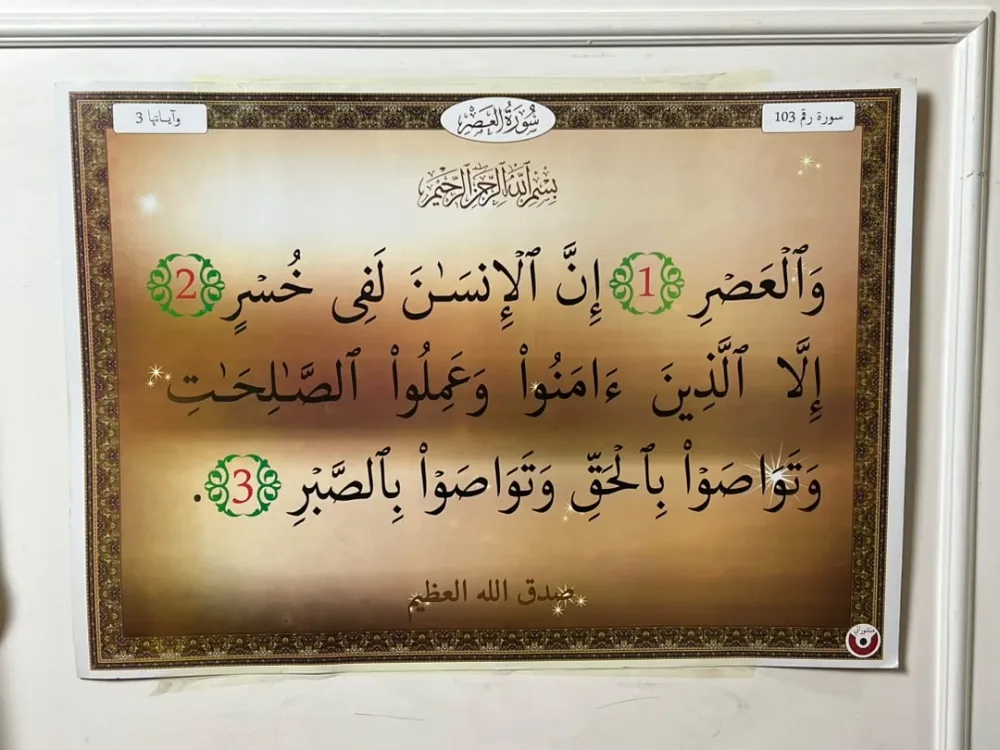 سورة رقم 103
سُورَةُ العَصْرِ
وآياتها 3
بِسْمِ ٱللَّهِ ٱلرَّحْمَٰنِ ٱلرَّحِيمِ
وَٱلْعَصْرِ 1 إِنَّ ٱلْإِنسَـٰنَ لَفِى خُسْرٍ 2
إِلَّا ٱلَّذِينَ ءَامَنُوا۟ وَعَمِلُوا۟ ٱلصَّـٰلِحَـٰتِ
وَتَوَاصَوْا۟ بِٱلْحَقِّ وَتَوَاصَوْا۟ بِٱلصَّبْرِ 3 .
صدق الله العظيم